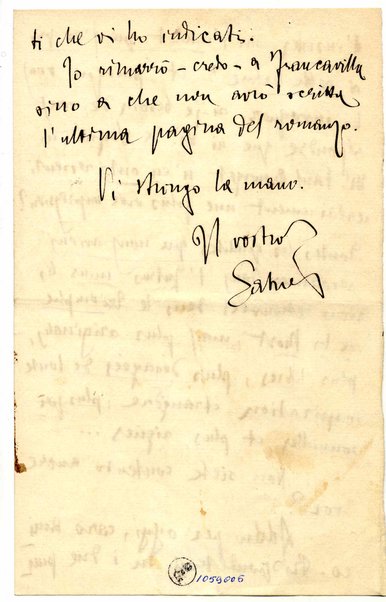 ti che vi ho indicati.
Io rimarrò – credo – a Francavilla
sino a che non avrò scritta
l'ultima pagina del romanzo.
Vi stringo la mano.
Il vostro
Gabriel
1059006